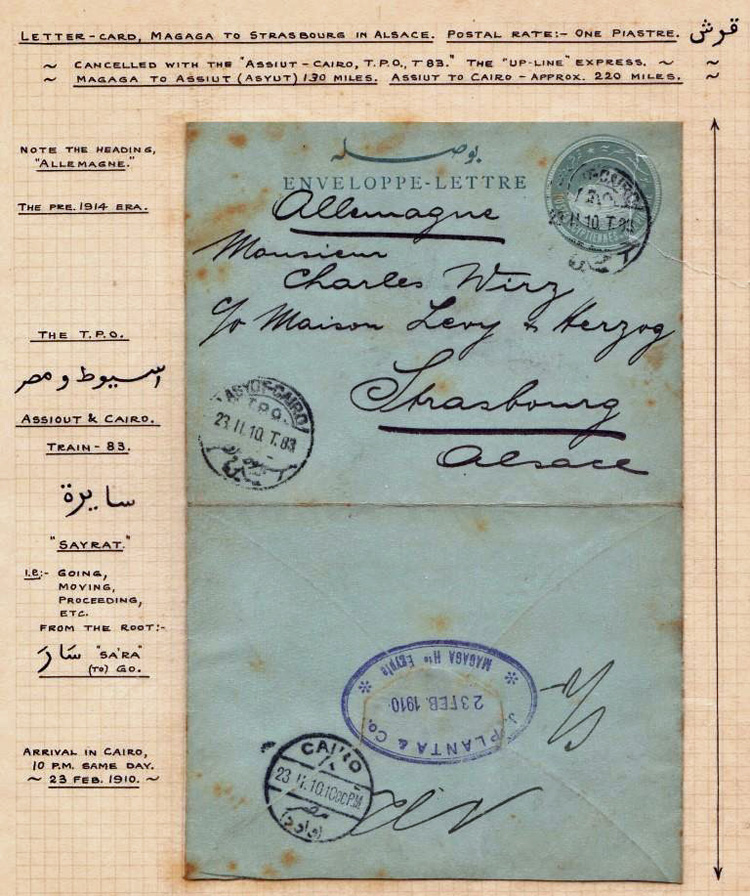 LETTER-CARD, MAGAGA TO STRASBOURG IN ALSACE. POSTAL RATE:- ONE PIASTRE. قرش
~ CANCELLED WITH THE "ASSIUT - CAIRO, T.P.O., T 83." THE "UP-LINE" EXPRESS. ~ ~
~ MAGAGA TO ASSIUT (ASYUT) 130 MILES. ASSIUT TO CAIRO - APPROX. 220 MILES. ~
NOTE THE HEADING,
"ALLEMAGNE."
THE PRE. 1914 ERA.
THE T.P.O.
اسيوط و مصر
ASSIOUT & CAIRO.
TRAIN - 83.
سايرة
"SAYRAT."
i.e:- GOING,
MOVING,
PROCEEDING,
ETC.
FROM THE ROOT:-
سَارَ "SA'RA"
(TO) GO.
ARRIVAL IN CAIRO,
10 P.M. SAME DAY.
~ 23 FEB. 1910. ~
بوصله
ENVELOPPE-LETTRE
Allemagne
Monsieur
Charles Wirz
c/o Maison Levy & Herzog
Strasbourg
Alsace
CAIRO
II.10 T.83
ASYUT-CAIRO
T.P.O.
23.II.10.T.83
J. PLANTA & CO.
23 FEB. 1910
MAGAGA Hte Egypte
CAIRO
23.II.10.10 PM
مصر